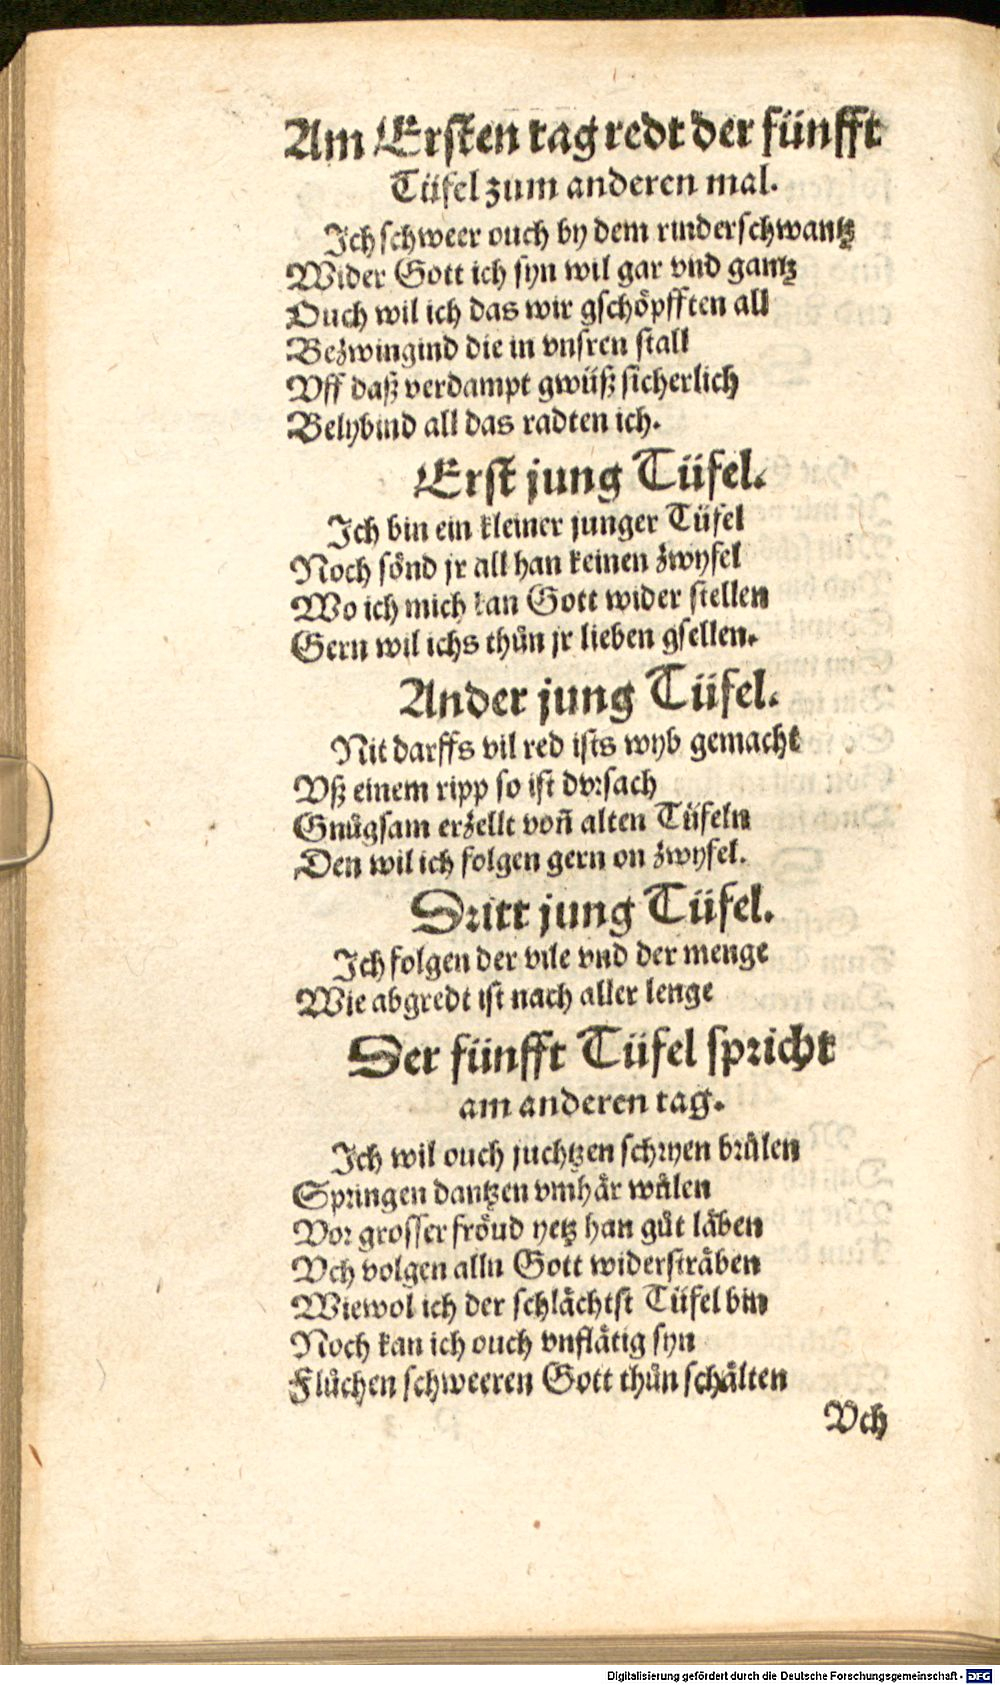 Am Ersten tag redt der fünfft
Tüfel zum anderen mal.
Ich schweer ouch by dem rinderschwantz
Wider Gott ich syn wil gar vnd gantz
Ouch wil ich das wir gschöpfften all
Bezwingind die in vnsren stall
Vff daß verdampt gwüß sicherlich
Belybind all das radten ich.
Erst jung Tüfel.
Ich bin ein kleiner junger Tüfel
Noch sönd jr all han keinen zwyfel
Wo ich mich kan Gott wider stellen
Gern wil ichs thůn jr lieben gsellen.
Ander jung Tüfel.
Nit darffs vil red ists wyb gemacht
Vß einem ripp so ist dvrsach
Gnůgsam erzellt von̄ alten Tüfeln
Den wil ich folgen gern on zwyfel.
Dritt jung Tüfel.
Ich folgen der vile vnd der menge
Wie abgredt ist nach aller lenge
Der fünfft Tüfel spricht
am anderen tag.
Ich wil ouch juchtzen schryen brůlen
Springen dantzen vmhår wůlen
Vor grosser fröud yetz han gůt låben
Vch volgen allu Gott widerstråben
Wiewol ich der schlåchtst Tüfel bin
Noch kan ich ouch vnflåtig syn
Flůchen schweeren Gott thůn schålten
Vch
Digitalisierung gefördert durch die Deutsche Forschungsgemeinschaft - DFG